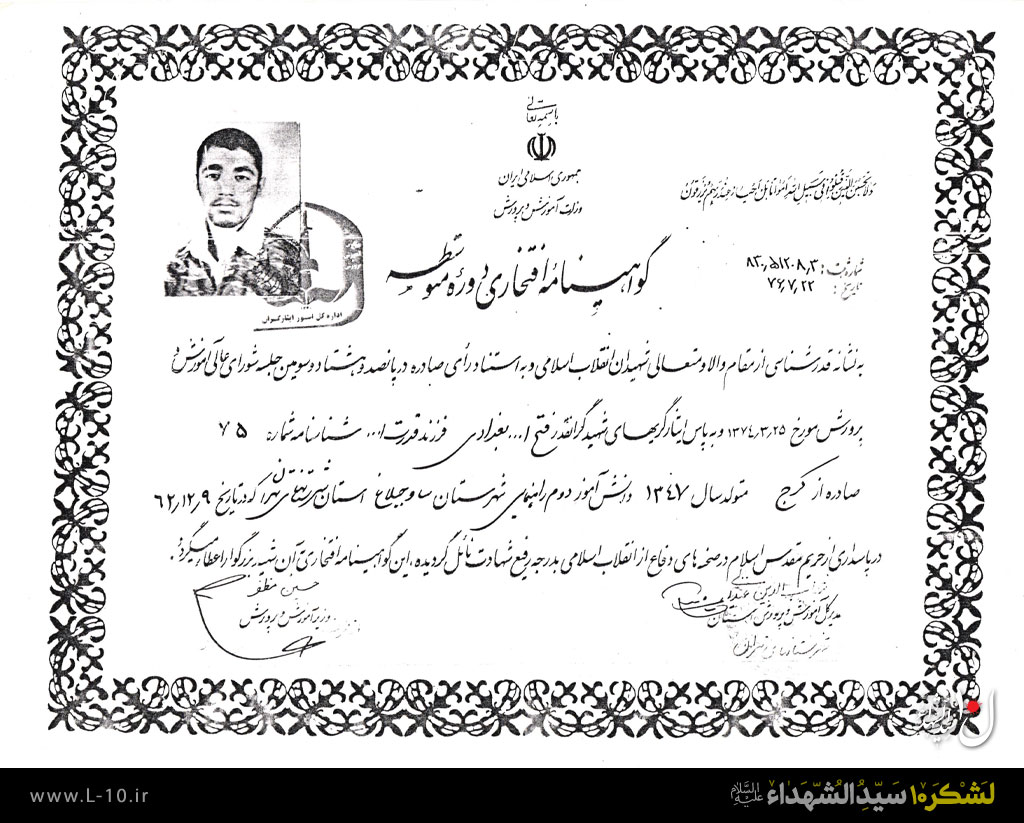 باسمه تعالی
جمهوری اسلامی ایران
وزارت آموزش و پرورش
ولا تحسبن الذین قتلوا فی سبیل الله امواتا بل احیاء عند ربهم یرزقون
گواهینامه افتخاری دوره متوسطه
شماره ثبت:
تاریخ: ۷۶٫۷٫۲۲
اداره کل امور ایثارگران
به نشانه قدرشناسی از مقام والا و متعالی شهیدان انقلاب اسلامی و به استناد رأی صادره در پانصد و هشتاد و سومین جلسه شورای عالی آموزش و
پرورش مورخ ۱۳۷۴٫۳٫۲۵ و به پاس ایثارگریهای شهید گرانقدر فتح ا... بغدادی فرزند قدرت ا... شناسنامه شماره ۷۵
صادره از کرج متولد سال ۱۳۴۷ دانش آموز دوم راهنمایی شهرستان ساوجبلاغ استان که در تاریخ ۶۲٫۱۲٫۹
در پاسداری از حریم مقدس اسلام در صحنه های دفاع از انقلاب اسلامی بدرجه رفیع شهادت نائل گردیده، این گواهینامه افتخاری به آن شهید بزرگوار اعطا میگردد.
مدیرکل آموزش و پرورش استان
شهرستانهای تهران
حسین مظفر
وزیر آموزش و پرورش
www.L-10.ir
لَشْکَرِ۱۰ سَیِّدُالشُّهَداءْ علیه السلام